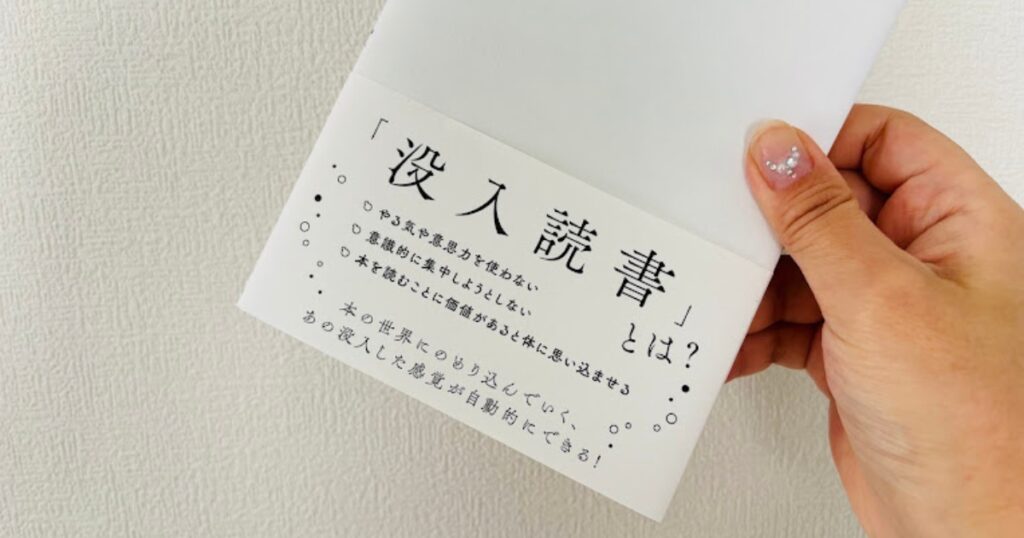 「没入読書」
とは?
やる気や意思力を使わない
意識的に集中しようとしない
本を読むことに価値があると体に思い込ませる
本の世界にのめり込んでいく、
あの没入した感覚が自動的にできる!